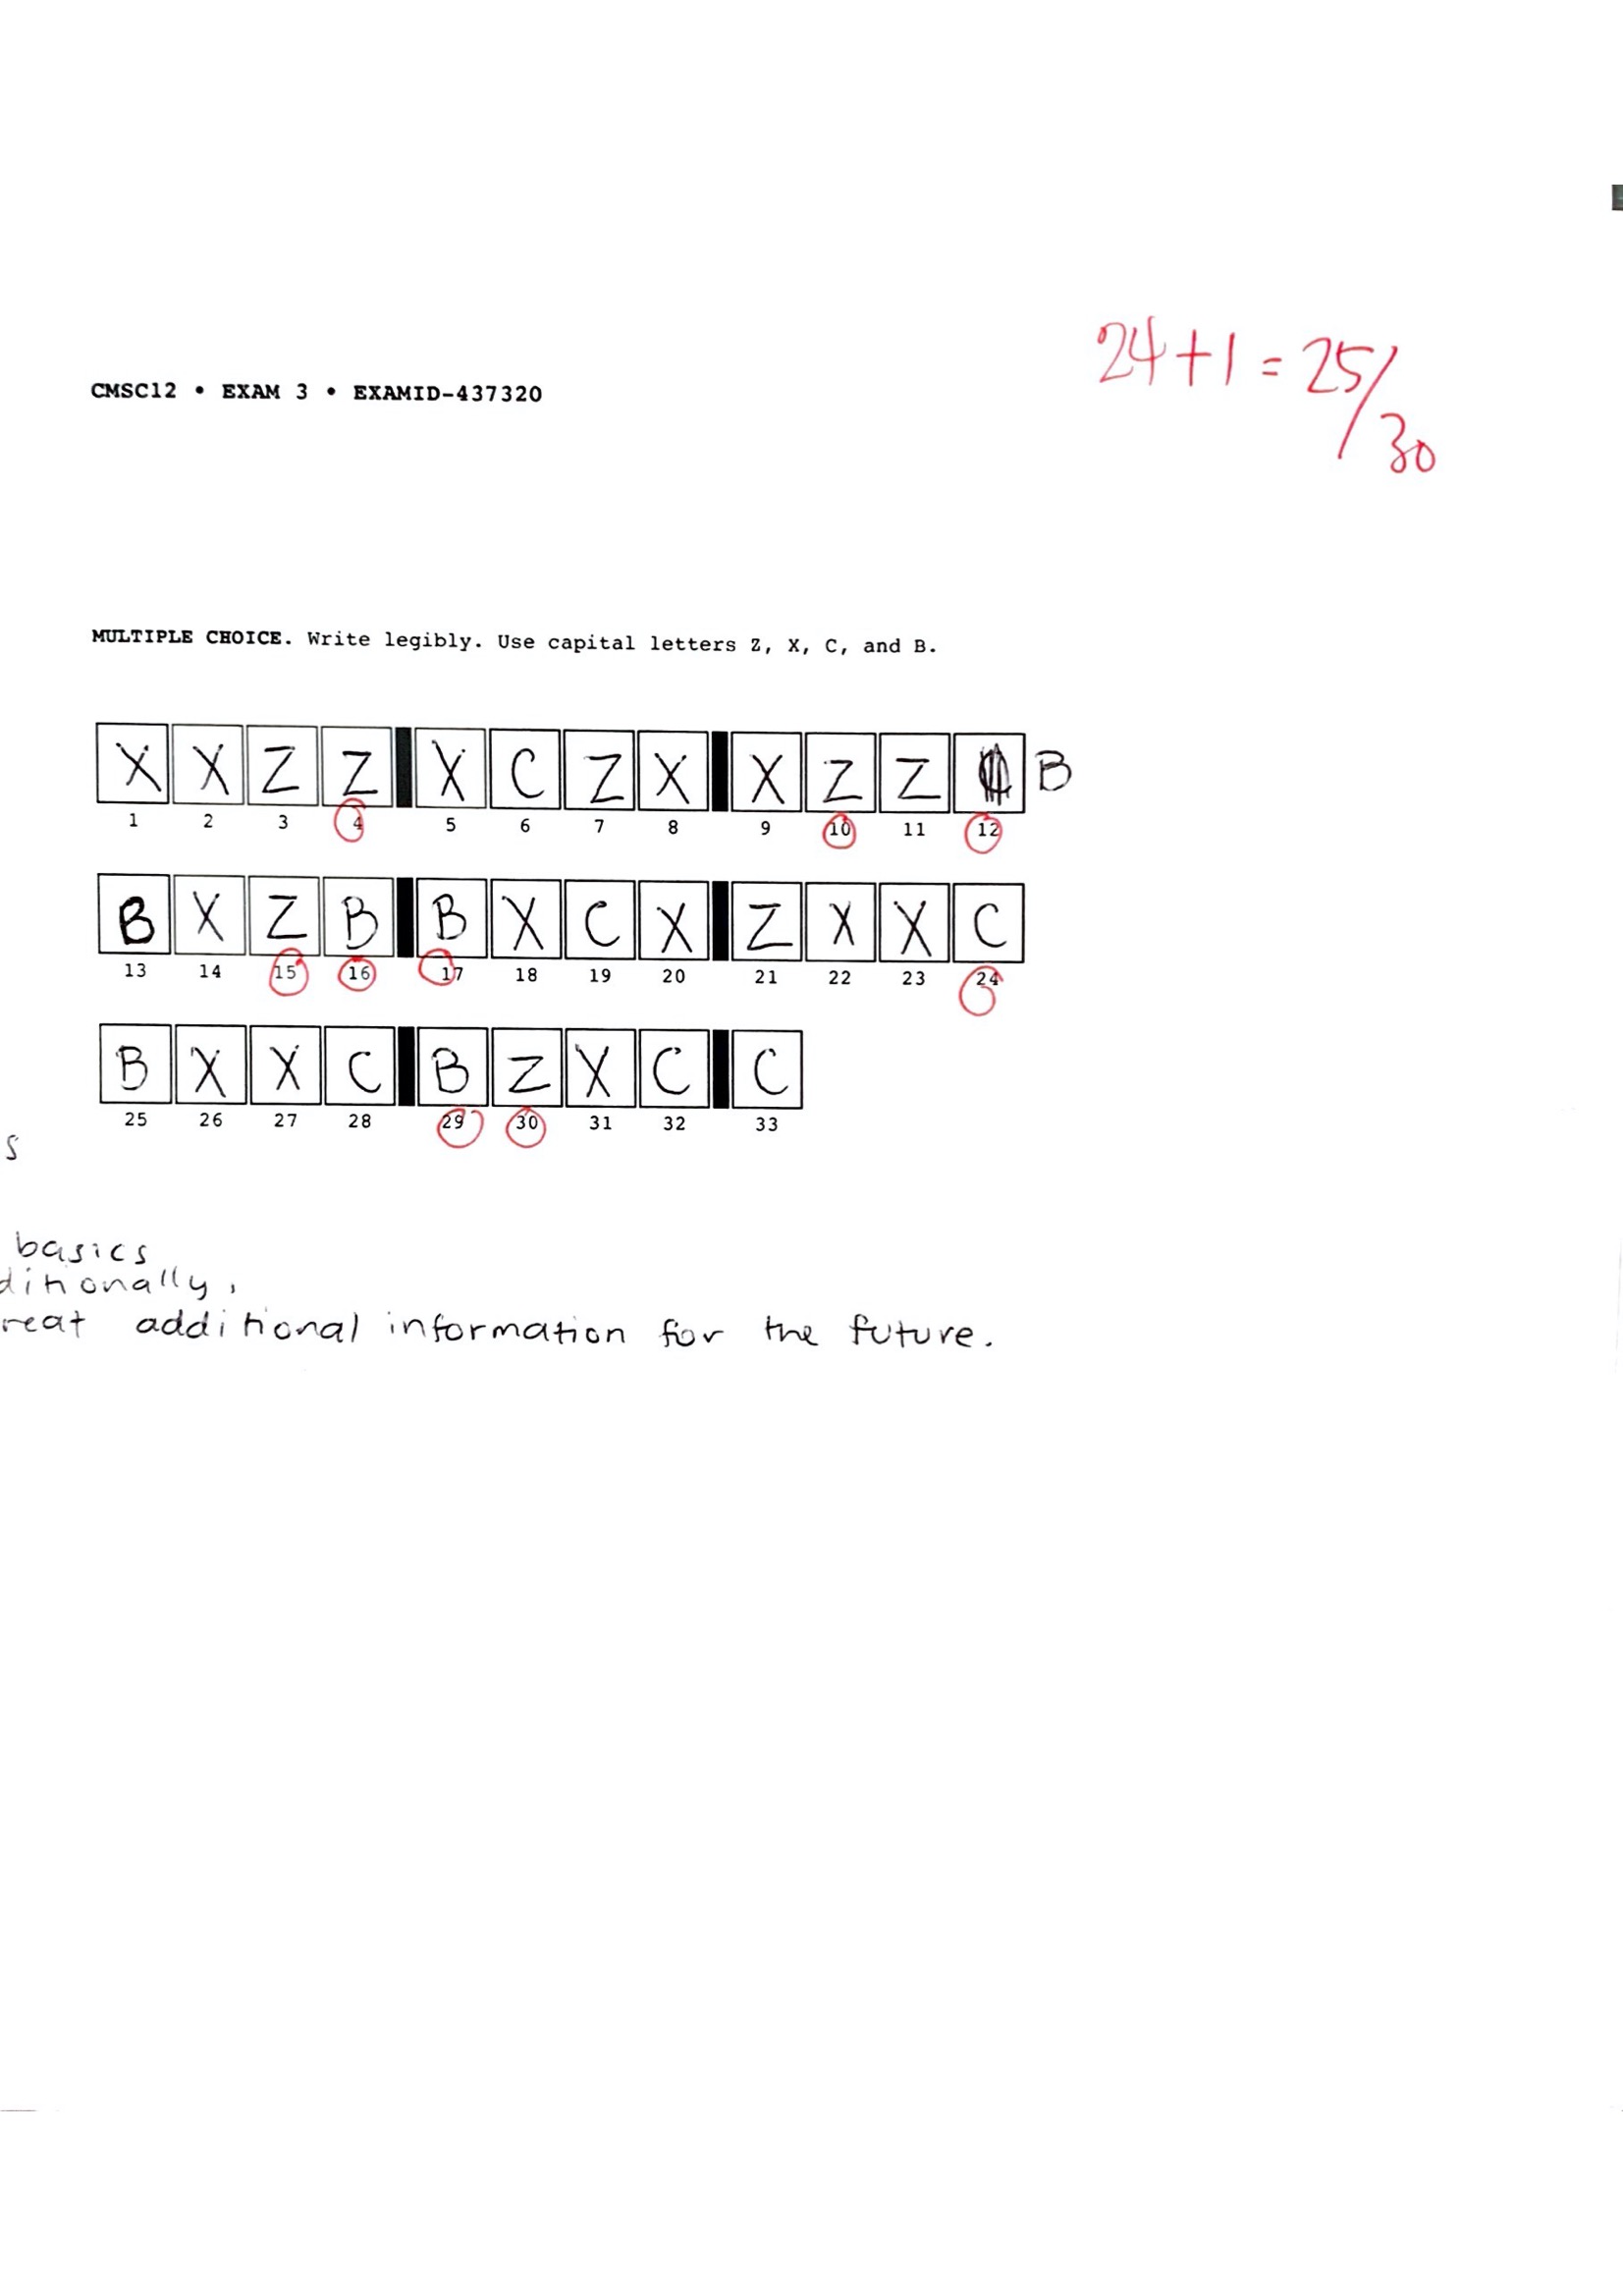 24+1=25/30
CMSC12 • EXAM 3 • EXAMID-437320
MULTIPLE CHOICE. Write legibly. Use capital letters Z, X, C, and B.
X X Z Z X C Z X X Z Z B
1 2 3 4 5 6 7 8 9 10 11 12
B X Z B B X C X Z X X C
13 14 15 16 17 18 19 20 21 22 23 24
B X X C B Z X C C
25 26 27 28 29 30 31 32 33
s
basics
ditionally,
reat additional information for the future.